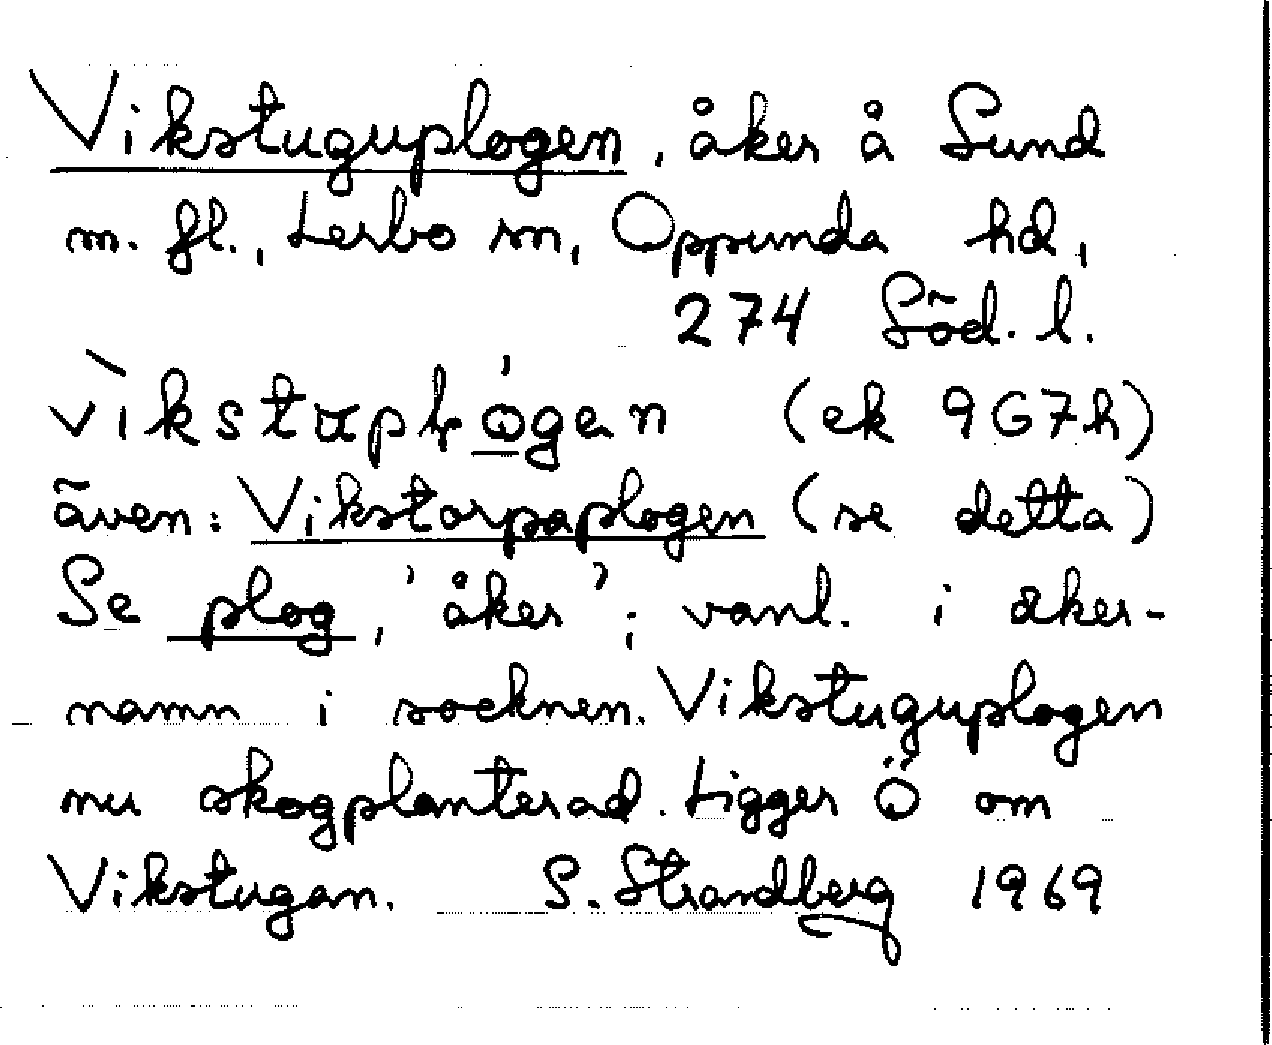 Vikstuguplogen, åker å Sund
m. fl., Lerbo sn, Oppunda hd,
274 Söd. l.
(ek 9G7h)
även: Vikstorpaplogen (se detta)
Se plog, 'åker'; vanl. i åker-
namn i socknen. Vikstuguplogen
nu skogplanterad. Ligger Ö om
Vikstugan. S. Strandberg 1969